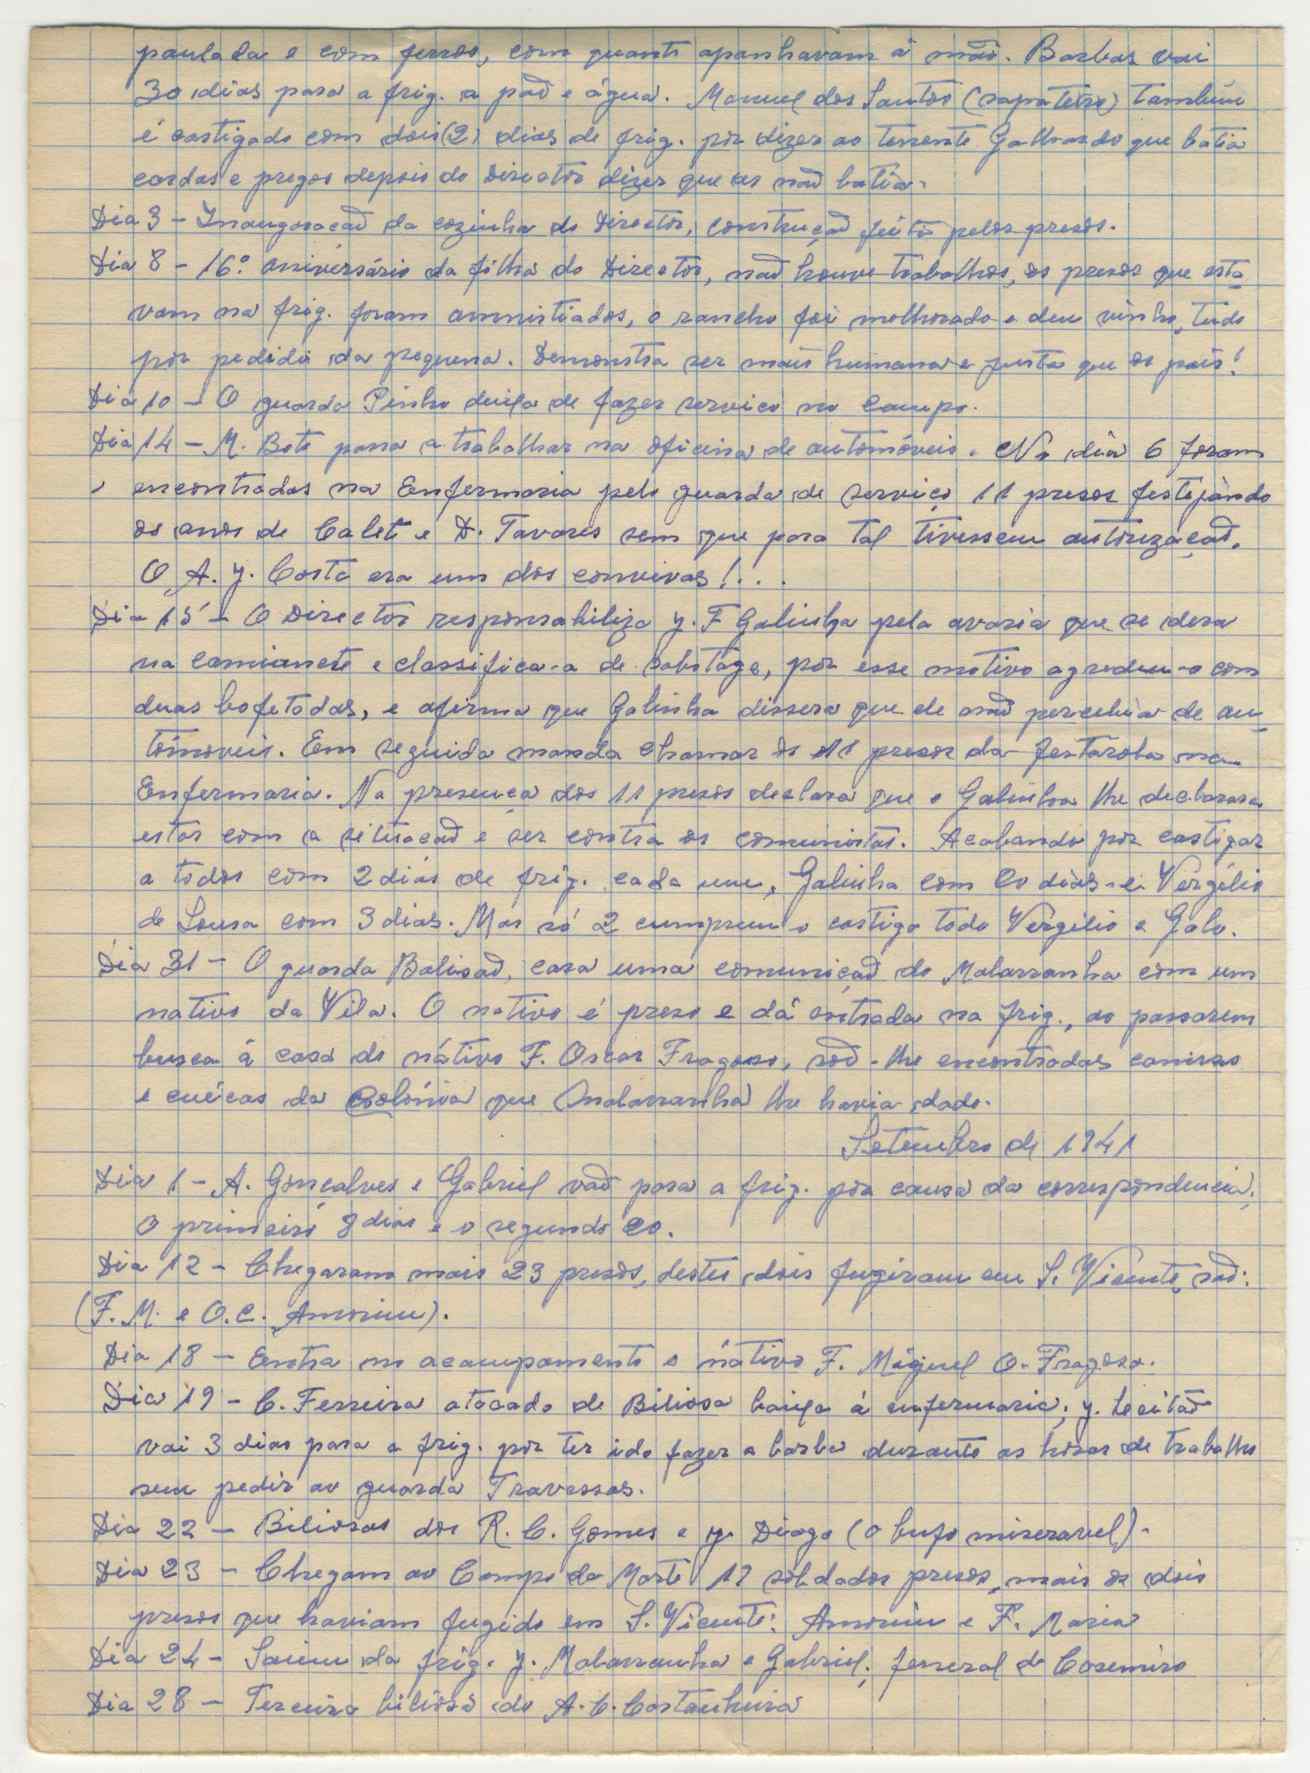 paulada e com ferros, com quanto apanhavam à mão. Barbas vai
30 dias para a frig. a pão e água. Manuel dos Santos (sapateiro) também
é castigado com dois (2) dias de frig. por dizer ao tenente Galhardo que batia
cardas e pregos depois do Director dizer que os não batia.
Dia 3 – Inauguração da cozinha do Director, construção feita pelos presos.
Dia 8 – 16º aniversário da filha do Director, não houve trabalhos, os presos que esta-
vam na frig. foram amnistiados, o rancho foi melhorado e deu vinho, tudo
por pedido da pequena. Demonstra ser mais humana e justa que os pais!
Dia 10 – O guarda Pinho deixa de fazer serviço no campo.
Dia 14 – M. Boto passa a trabalhar na oficina de automóveis. No dia 6 foram
encontrados na Enfermaria pelo guarda de serviço 11 presos festejando
os anos de Calet e D. Tavares sem que para tal tivessem autorização.
O A. J. Costa era um dos convivas!...
Dia 15 – O Director responsabiliza J. F Galinha pela avaria que se dera
na camionete e classifica-a de sabotage, por esse motivo agrediu-o com
duas bofetadas, e afirma que Galinha dissera que ele não percebia de au-
tomoveis. Em seguida manda chamar os 11 presos da festarola na
Enfermaria. Na presença dos 11 presos declara que o Galinha lhe declarara
estar com a situação e ser contra os comunistas. Acabando por castigar
a todos com 2 dias de frig. cada um, Galinha com 20 dias e Vergilio
de Sousa com 3 dias. Mas só 2 cumprem o castigo todo Vergilio e Galo.
Dia 31 – O guarda Balisão, caça uma comunicação do Malarranha com um
nativo da Vila. O nativo é preso e dá entrada na frig., ao passarem
busca à casa do nátivo F. Oscar Fragoso, são-lhe encontradas camisas
e cuécas da Colónia que Malarranha lhe havia dado.
Setembro de 1941
Dia 1 – A. Gonçalves e Gabriel vão para a frig. por causa da correspondencia,
o primeiro 8 dias e o segundo 20.
Dia 12 – Chegaram mais 23 presos, destes dois fugiram em S. Vicente, são:
(F. M. e O. C. Amorim).
Dia 18 – Entra no acampamento o nátivo F. Miguel O. Fragoso.
Dia 19 – C. Ferreira atacado de Biliosa baixa á enfermaria; J. Leitão
vai 3 dias para a frig. por ter ido fazer a barba durante as horas de trabalho
sem pedir ao guarda Travassos.
Dia 22 – Biliosas dos R. C. Gomes e J. Diogo (o bufo miseravel).
Dia 23 – Chegam ao Campo da Morte 17 soldados presos, mais os dois
presos que haviam fugido em S. Vicente: Amorim e F. Maria
Dia 24 – Saiem da frig. J. Malarranha e Gabriel; do Casemiro
Dia 28 – Terceira biliosa do A. C. Castanheira